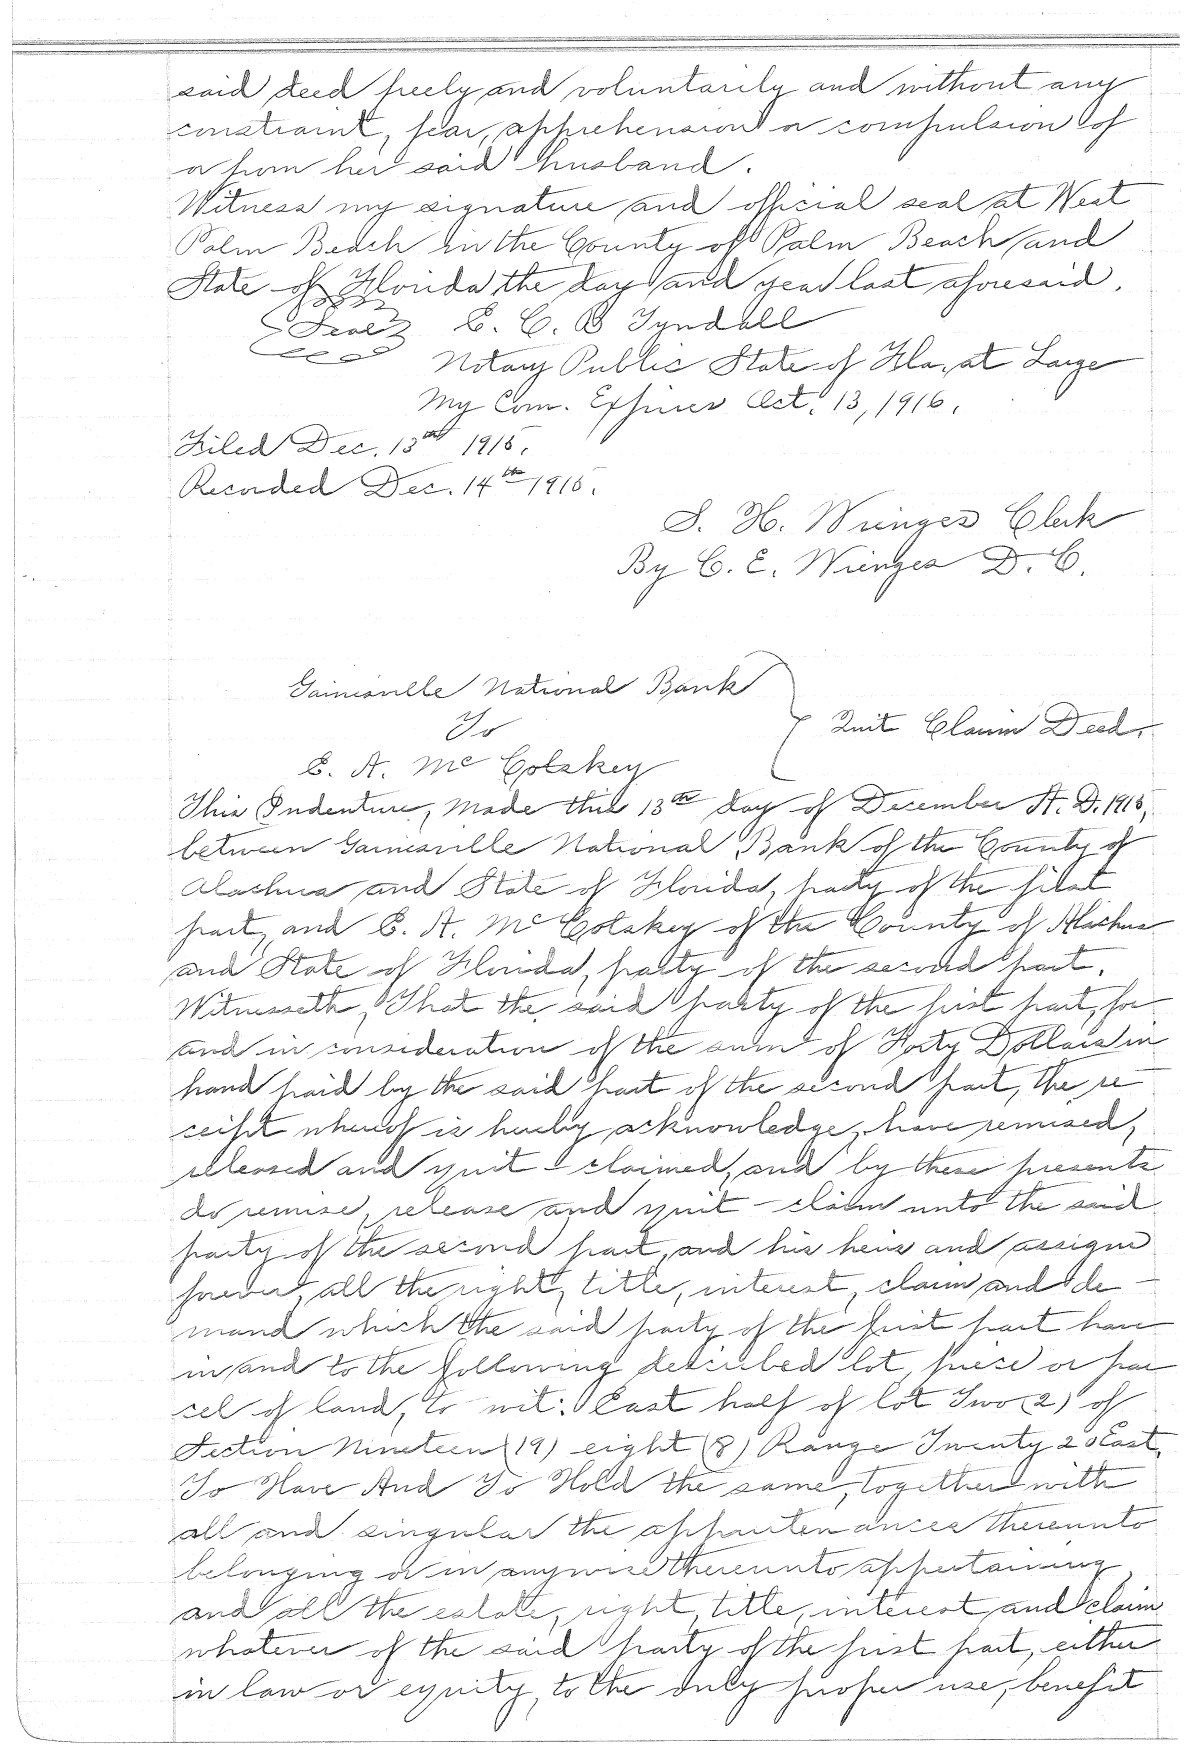 said deed freely and voluntarily and without any
constraint, fear, apprehension or compulsion of
or from her said husband.
Witness my signature and official seal at West
Palm Beach in the County of Palm Beach and
State of Florida the day and year last aforesaid.
{Seal} E. C. B Tyndall
Notary Public State of Fla, at Large
My Com. Expires Oct. 13, 1916.
Filed Dec. 13th 1915.
Recorded Dec. 14th 1915.
S. H. Wienges Clerk
By C. E. Wienges D. C.
Gainesville National Bank
To
Quit Claim Deed.
E. A. Mc Colskey
This Indenture, Made this 13th day of December A. D. 1915,
between Gainesville National Bank of the County of
Alachua and State of Florida, party of the first
part, and E. A. Mc Colskey of the County of Alachua
and State of Florida, party of the second part.
Witnesseth, That the said party of the first part, for
and in consideration of the sum of Forty Dollars in
hand paid by the said part of the second part, the re-
ceipt whereof is hereby acknowledge, have remised,
released and quit-claimed, and by these presents
do remise, release and quit-claim unto the said
party of the second part, and his heirs and assigns
forever, all the right, title, interest, claim and de-
mand which the said party of the first part have
in and to the following described lot, piece or par
cel of land, to wit: East half of lot Two (2) of
Section Nineteen (19) eight (8) Range Twenty 20 East.
To Have And To Hold the same, together with
all and singular the appurtenances thereunto
belonging or in anywise thereunto appertaining,
and all the estate, right, title, interest and claim
whatever of the said party of the first part, either
in law or equity, to the only proper use, benefit